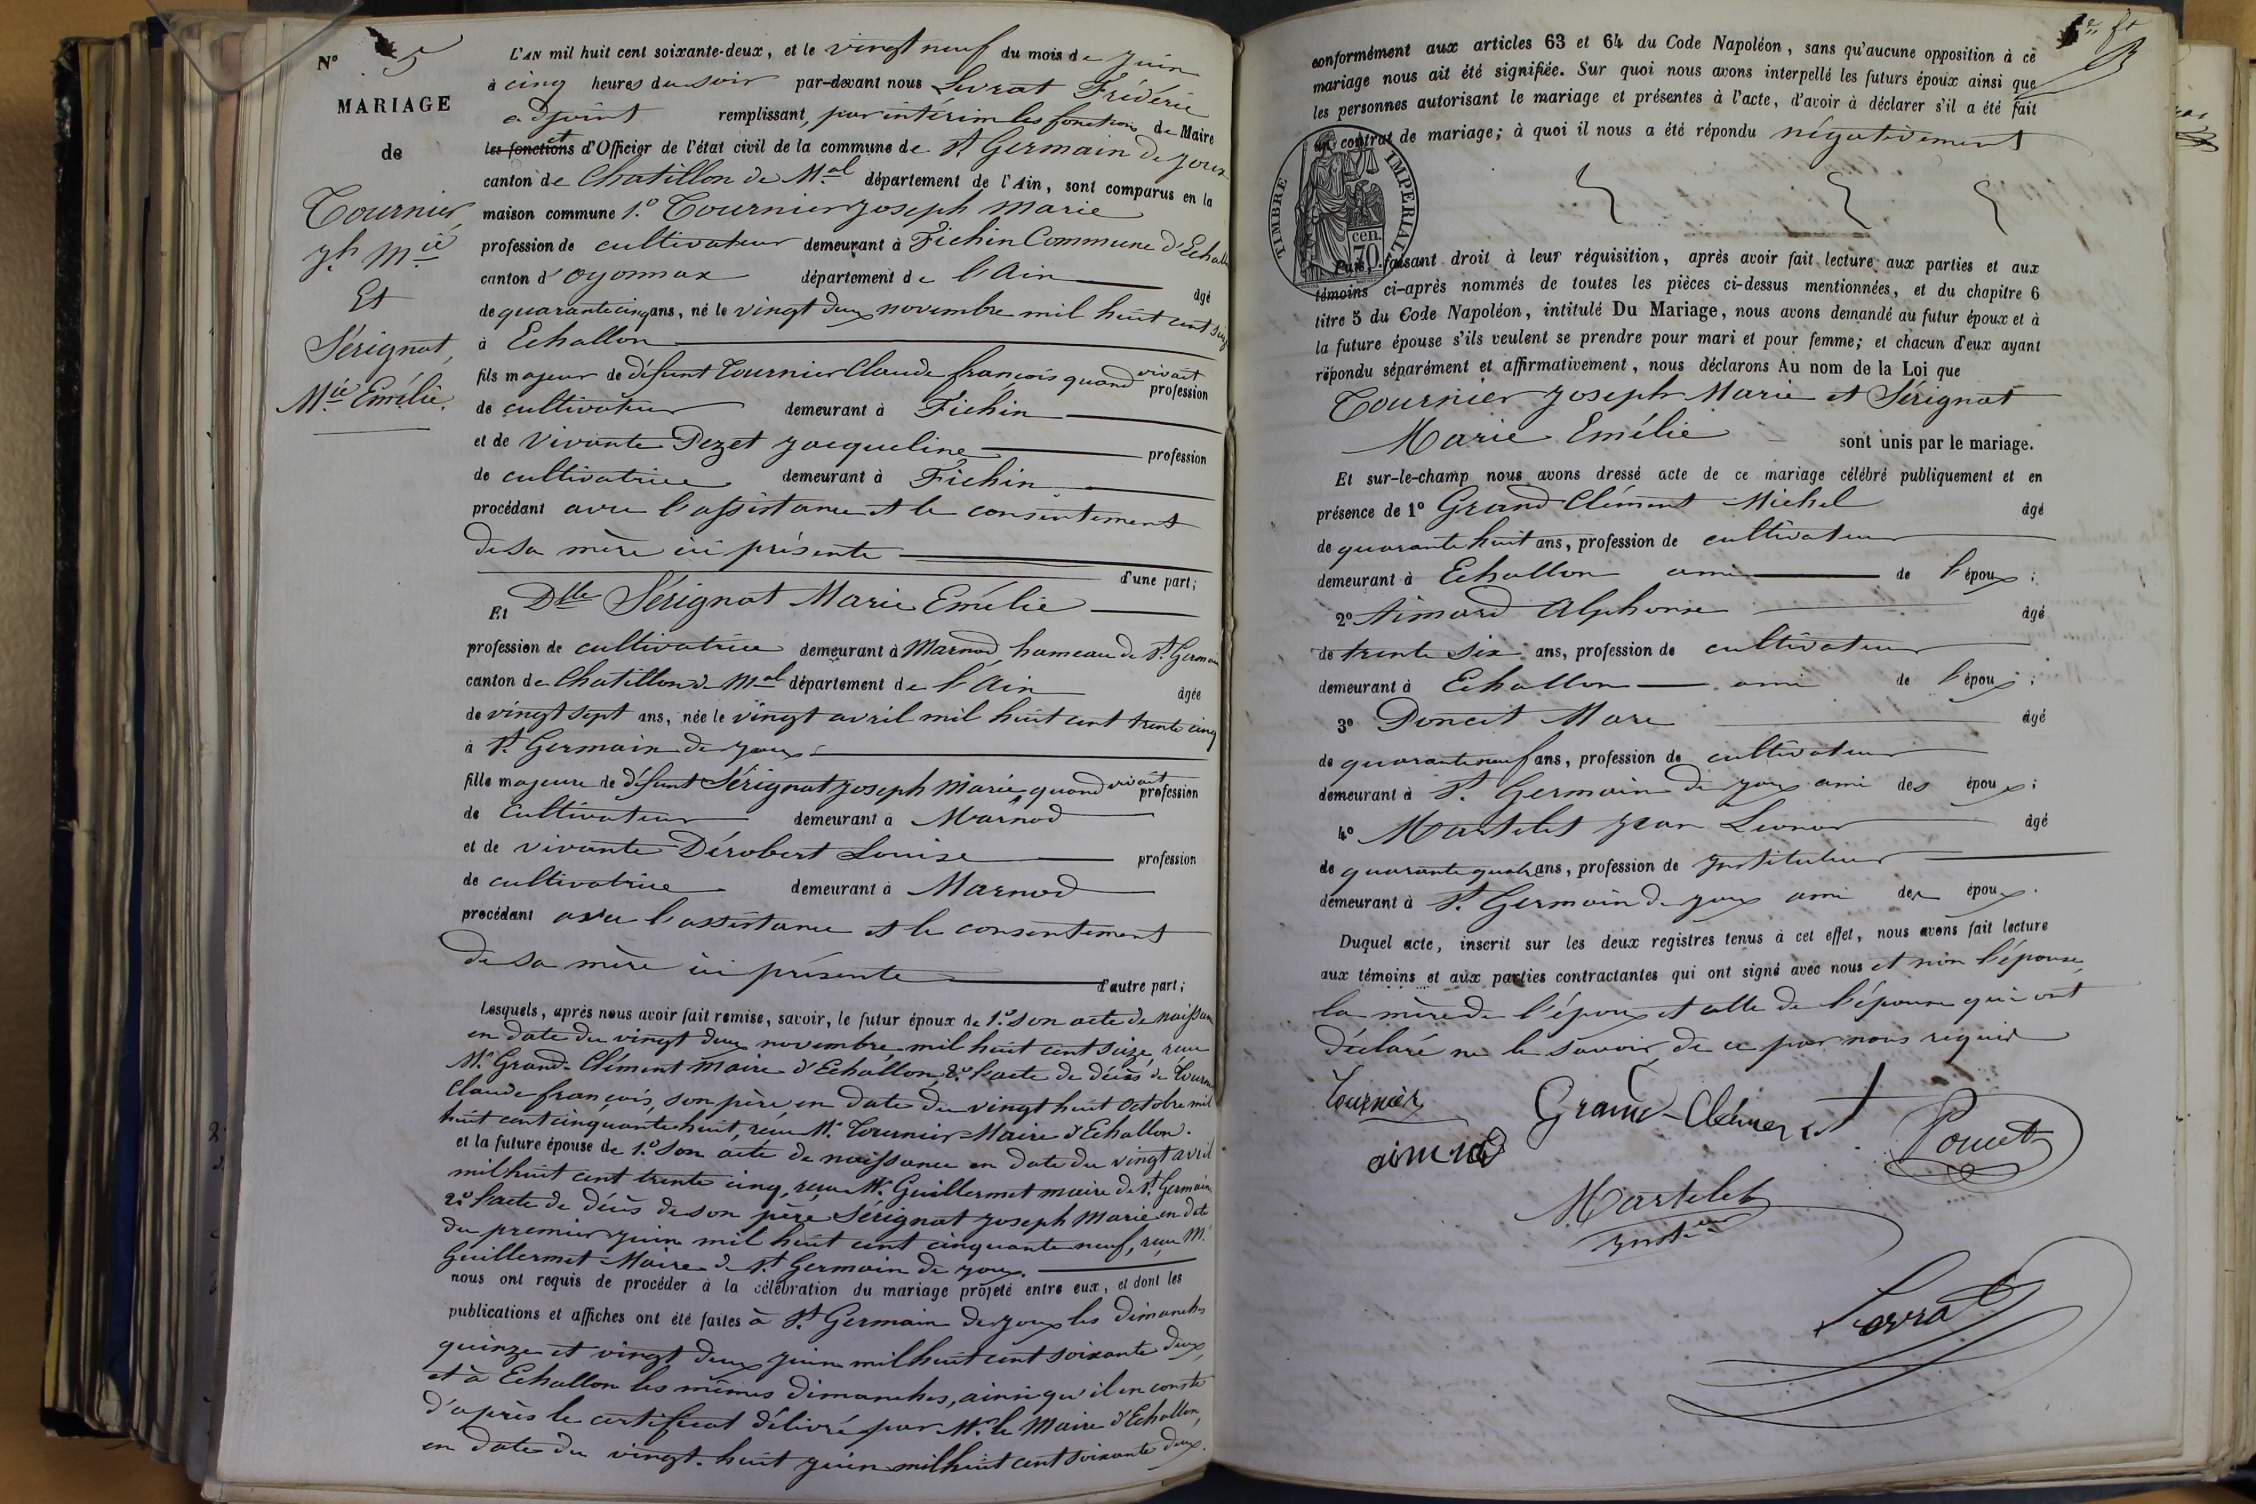 N° 5
MARIAGE
de
Tournier
Jh Mie
Et
Sérignat,
Mie Emélie.
L'AN mil huit cent soixante-deux, et le vingt neuf du mois de Juin
à cinq heures du soir par-devant nous Levrat Frédéric
adjoint remplissant, par intérim les fonctions de Maire
les fonctions et d'Officier de l'état civil de la commune de St Germain de Joux
canton de Chatillon de Mal département de l'Ain, sont comparus en la
maison commune 1.° Tournier Joseph Marie
profession de cultivateur demeurant à Fichin Commune d'Echallon
canton d'Oyonnax département de l'Ain âgé
de quarante cinq ans, né le vingt deux novembre mil huit cent seize
à Echallon
fils majeur de défunt Tournier Claude françois quand vivait profession
de cultivateur demeurant à Fichin
et de vivante Dezet Jacqueline profession
de cultivatrice demeurant à Fichin
procédant avec l'assistance et le consentement
de sa mère ici présente
d'une part;
Et Dlle Sérignat Marie Emélie
profession de cultivatrice demeurant à Marnod, hameau de St Germain
canton de Chatillon de Mal département de l'Ain âgée
de vingt sept ans, née le vingt avril mil huit cent trente cinq
à St Germain de Joux
fille majeure de défunt Sérignat Joseph Marie, quand vivait profession
de cultivateur demeurant à Marnod
et de vivante Dérobert Louise profession
de cultivatrice demeurant à Marnod
procédant avec l'assistance et le consentement
de sa mère ici présente d'autre part;
Lesquels, après nous avoir fait remise, savoir, le futur époux de 1.° son acte de naissance
en date du vingt deux novembre mil huit cent seize, reçu
Mr Grand-Clément Maire d'Echallon, 2.° l'acte de décès de Tournier
Claude françois, son père en date du vingt huit octobre mil
huit cent cinquante huit, reçu Mr Tournier Maire d'Echallon.
et la future épouse de 1.° son acte de naissance en date du vingt avril
mil huit cent trente cinq, reçu Mr Guillermet maire de St Germain
2.° l'acte de décès de son père Sérignat Joseph Marie en date
du premier juin mil huit cent cinquante neuf, reçu Mr
Guillermet Maire de St Germain de Joux.
nous ont requis de procéder à la célébration du mariage projeté entre eux, et dont les
publications et affiches ont été faites à St Germain de Joux les dimanches
quinze et vingt deux juin mil huit cent soixante deux,
et à Echallon les mêmes dimanches, ainsi qu'il en conste
d'après le certificat délivré par Mr le Maire d'Echallon,
en date du vingt-huit juin mil huit cent soixante deux.
conformément aux articles 63 et 64 du Code Napoléon, sans qu'aucune opposition à ce
mariage nous ait été signifiée. Sur quoi nous avons interpellé les futurs époux ainsi que
les personnes autorisant le mariage et présentes à l'acte, d'avoir à déclarer s'il a été fait
un contrat de mariage; à quoi il nous a été répondu négativement
TIMBRE IMPERIAL
70 cen.
Puis, faisant droit à leur réquisition, après avoir fait lecture aux parties et aux
témoins ci-après nommés de toutes les pièces ci-dessus mentionnées, et du chapitre 6
titre 5 du Code Napoléon, intitulé Du Mariage, nous avons demandé au futur époux et à
la future épouse s'ils veulent se prendre pour mari et pour femme; et chacun d'eux ayant
répondu séparément et affirmativement, nous déclarons Au nom de la Loi que
Tournier Joseph Marie et Sérignat
Marie Emélie sont unis par le mariage.
Et sur-le-champ nous avons dressé acte de ce mariage célébré publiquement et en
présence de 1° Grand Clément Michel âgé
de quarante huit ans, profession de cultivateur
demeurant à Echallon ami de l'époux;
2° Aimard Alphonse âgé
de trente six ans, profession de cultivateur
demeurant à Echallon ami de l'époux;
3° Poncet Marc âgé
de quarante neuf ans, profession de cultivateur
demeurant à St Germain de Joux ami des époux;
4° Martelet Jean Leonor âgé
de quarante quatre ans, profession de Instituteur
demeurant à St Germain de Joux ami des époux.
Duquel acte, inscrit sur les deux registres tenus à cet effet, nous avons fait lecture
aux témoins et aux parties contractantes qui ont signé avec nous et non l'épouse,
la mère de l'époux et celle de l'épouse qui ont
déclaré ne le savoir, de ce par nous requis
Tournier Grand-Clément Poncet
aimard
Martelet
Insteur
Levrat